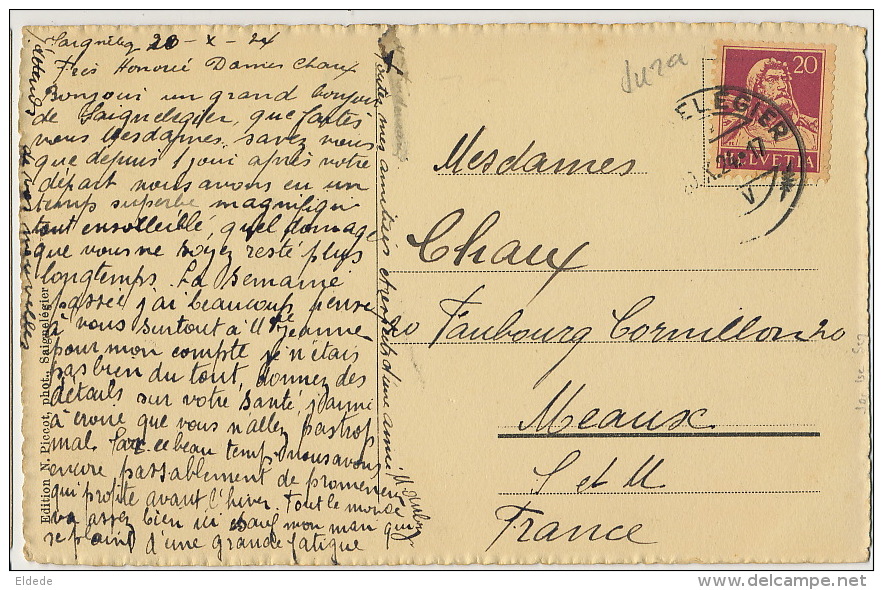 Saignelég 20-X-24
Très Honoré Dames Chaux
Bonjour un grand bonjour
de Saignelegier, que faites
vous Mesdames, savez vous
que depuis 1 jour après votre
départ nous avons eu un
temps superbe magnifiqu
tout ensolleillé, quel domage
que vous ne soyez resté plus
longtemps. La semaine
passée j'ai beaucoup pensé
à vous surtout à Mlle Jeanne
pour mon compte je n'étais
pas bien du tout, donnez des
détails sur votre santé, j'aime
à croire que vous n'allez pas trop
mal. Par ce beau temps nous avons
encore passablement de promeneurs
qui profite avant l'hiver. Tout le monde
va assez bien ici sauf mon mari qui
se plaint d'une grande fatigue
j'attends de vos nouvelles
mes amitiés et d'une amie
Edition N. Piccot, phot., Saignelégier
Jura
20
HELVETIA
ELÉGIER
X.24-17
V
Mesdames
Chaux
20 Faubourg Cornillon 20
Meaux
S et M
France
Eldede
delcampe.net